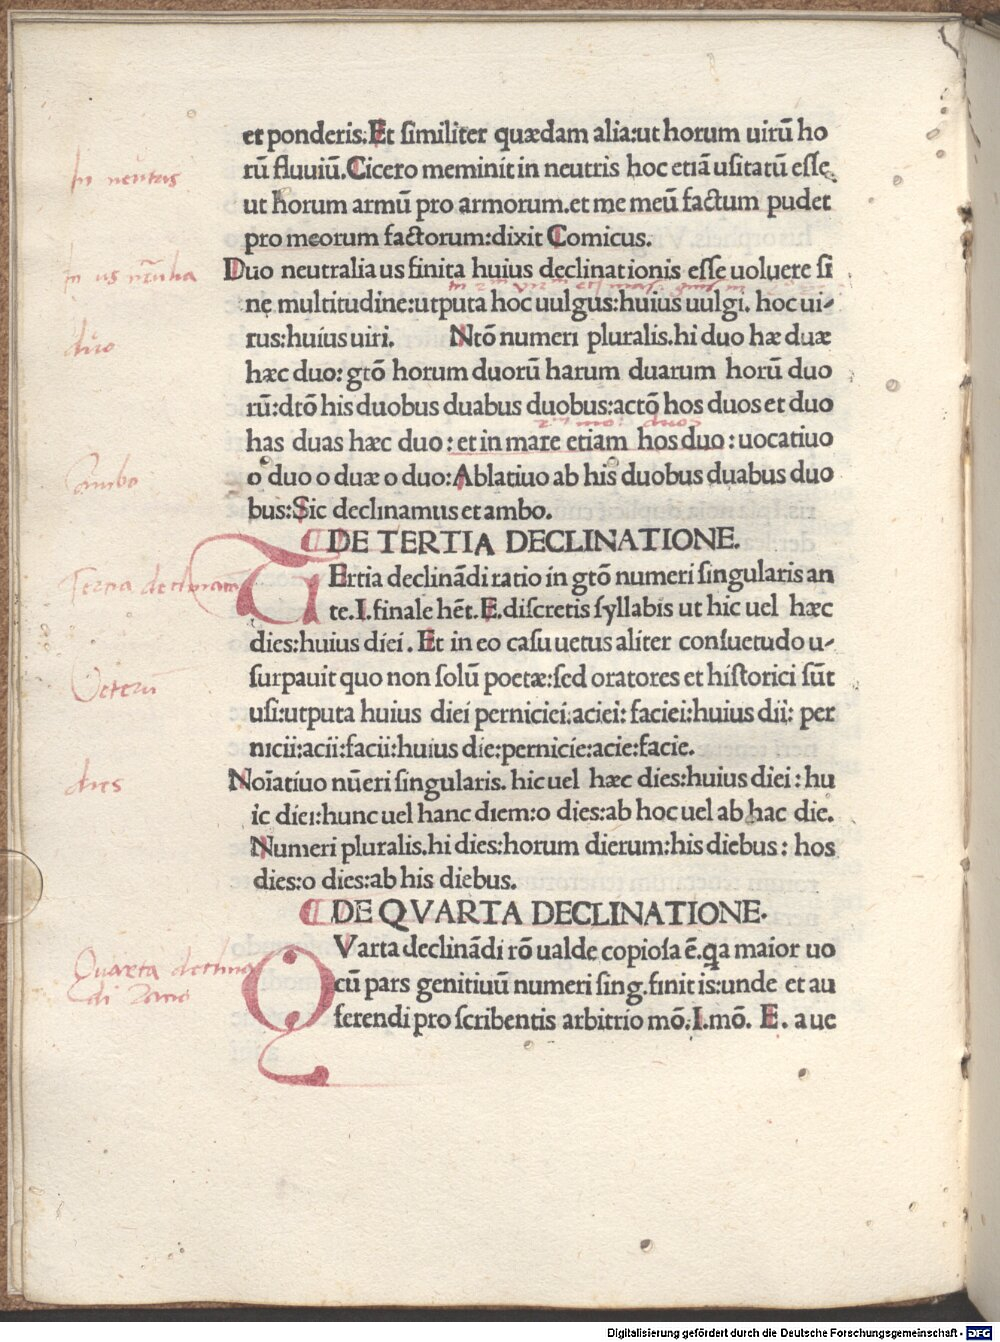 et ponderis.Et similiter quædam alia:ut horum uirũ ho
rũ fluuiũ.Cicero meminit in neutris hoc etiã usitatũ esse.
In neutris
ut horum armũ pro armorum.et me meũ factum pudet
pro meorum factorum:dixit Comicus.
Duo neutralia us finita huius declinationis esse uoluere si
In us
ne multitudine:utputa hoc uulgus:huius uulgi. hoc ui-
rus:huius uiri. Ntõ numeri pluralis.hi duo hæ duæ
duo
hæc duo: gtõ horum duorũ harum duarum horũ duo
rũ:dtõ his duobus duabus duobus:actõ hos duos et duo
has duas hæc duo : et in mare etiam hos duo : uocatiuo
o duo o duæ o duo: Ablatiuo ab his duobus duabus duo
Ambo
bus:Sic declinamus et ambo.
DE TERTIA DECLINATIONE.
TErtia declinãdi ratio in gtõ numeri singularis an
Tertia
te.I.finale hẽt.E.discretis syllabis ut hic uel hæc
dies:huius diei . Et in eo casu uetus aliter consuetudo u-
surpauit quo non solũ poetæ:sed oratores et historici sũt
Veterũ
usi:utputa huius diei perniciei:aciei: faciei:huius dii: per
nicii:acii:facii:huius die:pernicie:acie:facie.
Noĩatiuo nũeri singularis. hic uel hæc dies:huius diei : hu
dies
ic diei:hunc uel hanc diem:o dies:ab hoc uel ab hac die.
Numeri pluralis.hi dies:horum dierum:his diebus : hos
dies:o dies:ab his diebus.
DE QVARTA DECLINATIONE.
QVarta declinãdi rõ ualde copiosa ẽ.qa maior uo
Quarta declina
cũ pars genitiuũ numeri sing.finit is:unde et au
di
ferendi pro scribentis arbitrio mõ.I.mõ. E. a ue
Digitalisierung gefördert durch die Deutsche Forschungsgemeinschaft - DFG